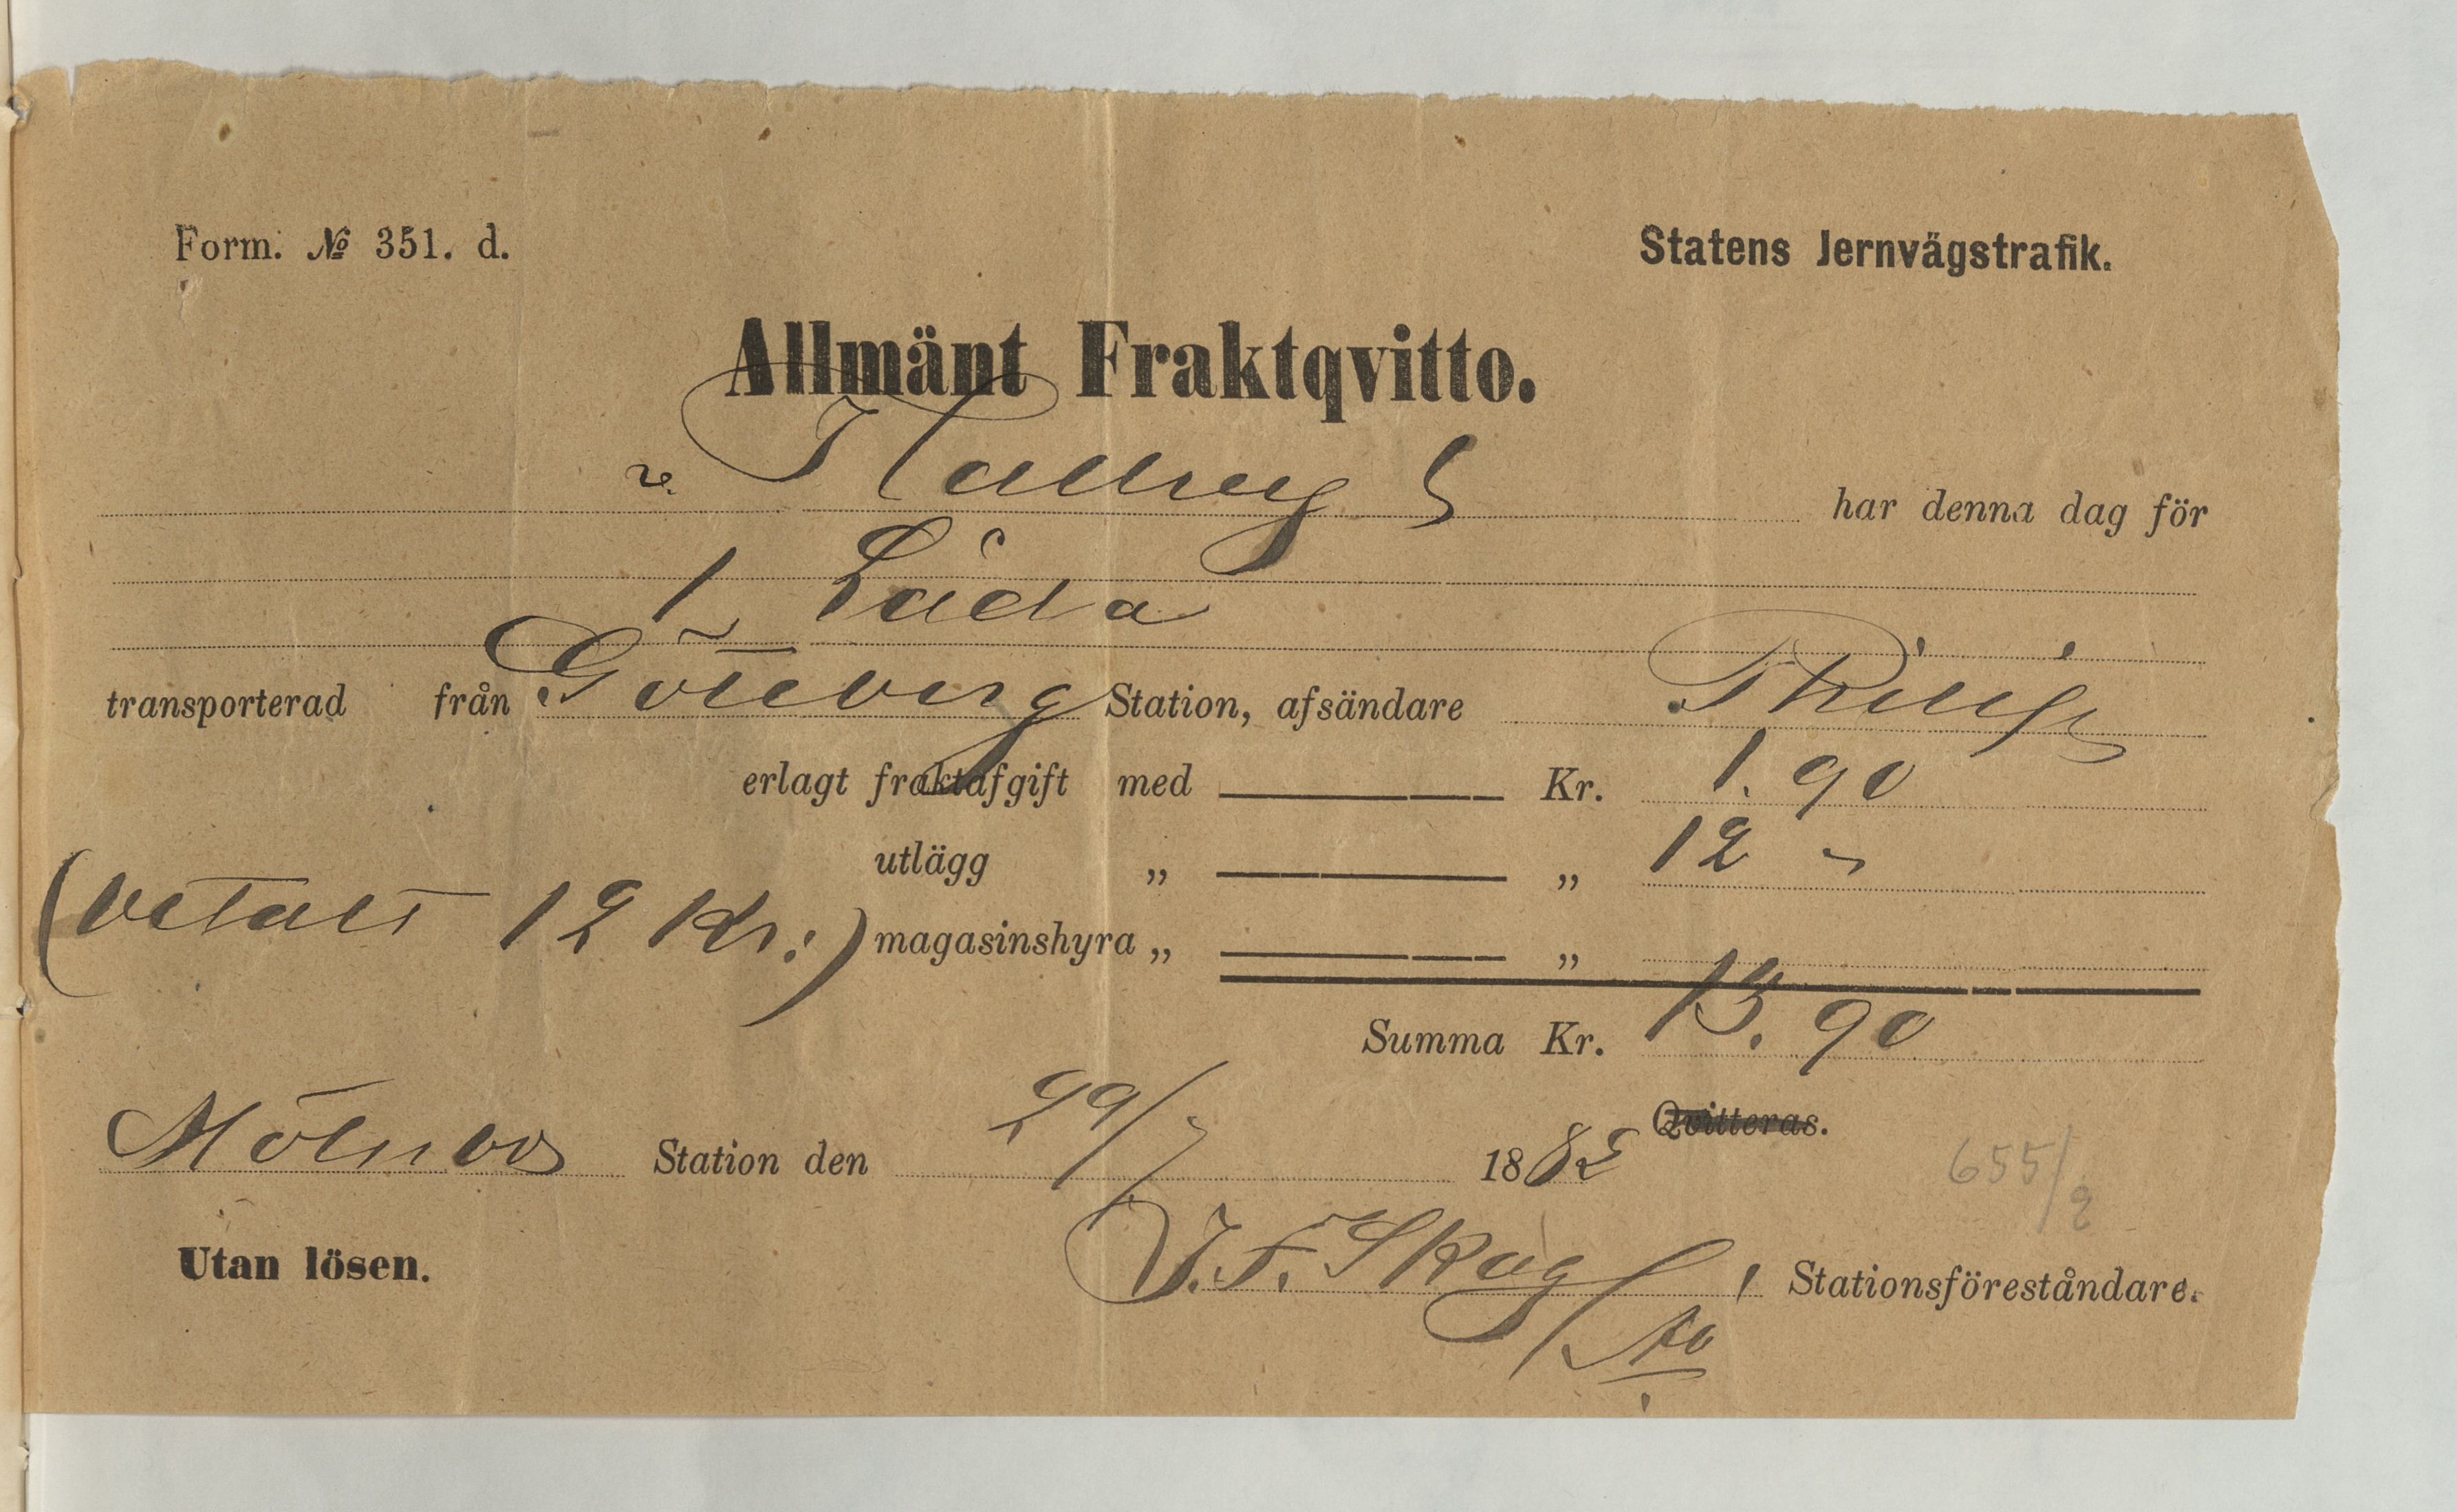 Form. № 351. d. Statens Jernvägstrafik.
Allmänt Fraktqvitto.
har denna dag för
1 Låda
transporterad från Göteborg Station, afsändare
erlagt fraktafgift med Kr. 1.90
utlägg „ „ 12 -
(betalt 12 Kr:) magasinshyra „ „
Summa Kr. 13.90
Qvitteras.
Mölnbo Station den 29/7 1882
655/2
J. F. Skog
Utan lösen. Stationsföreståndare.